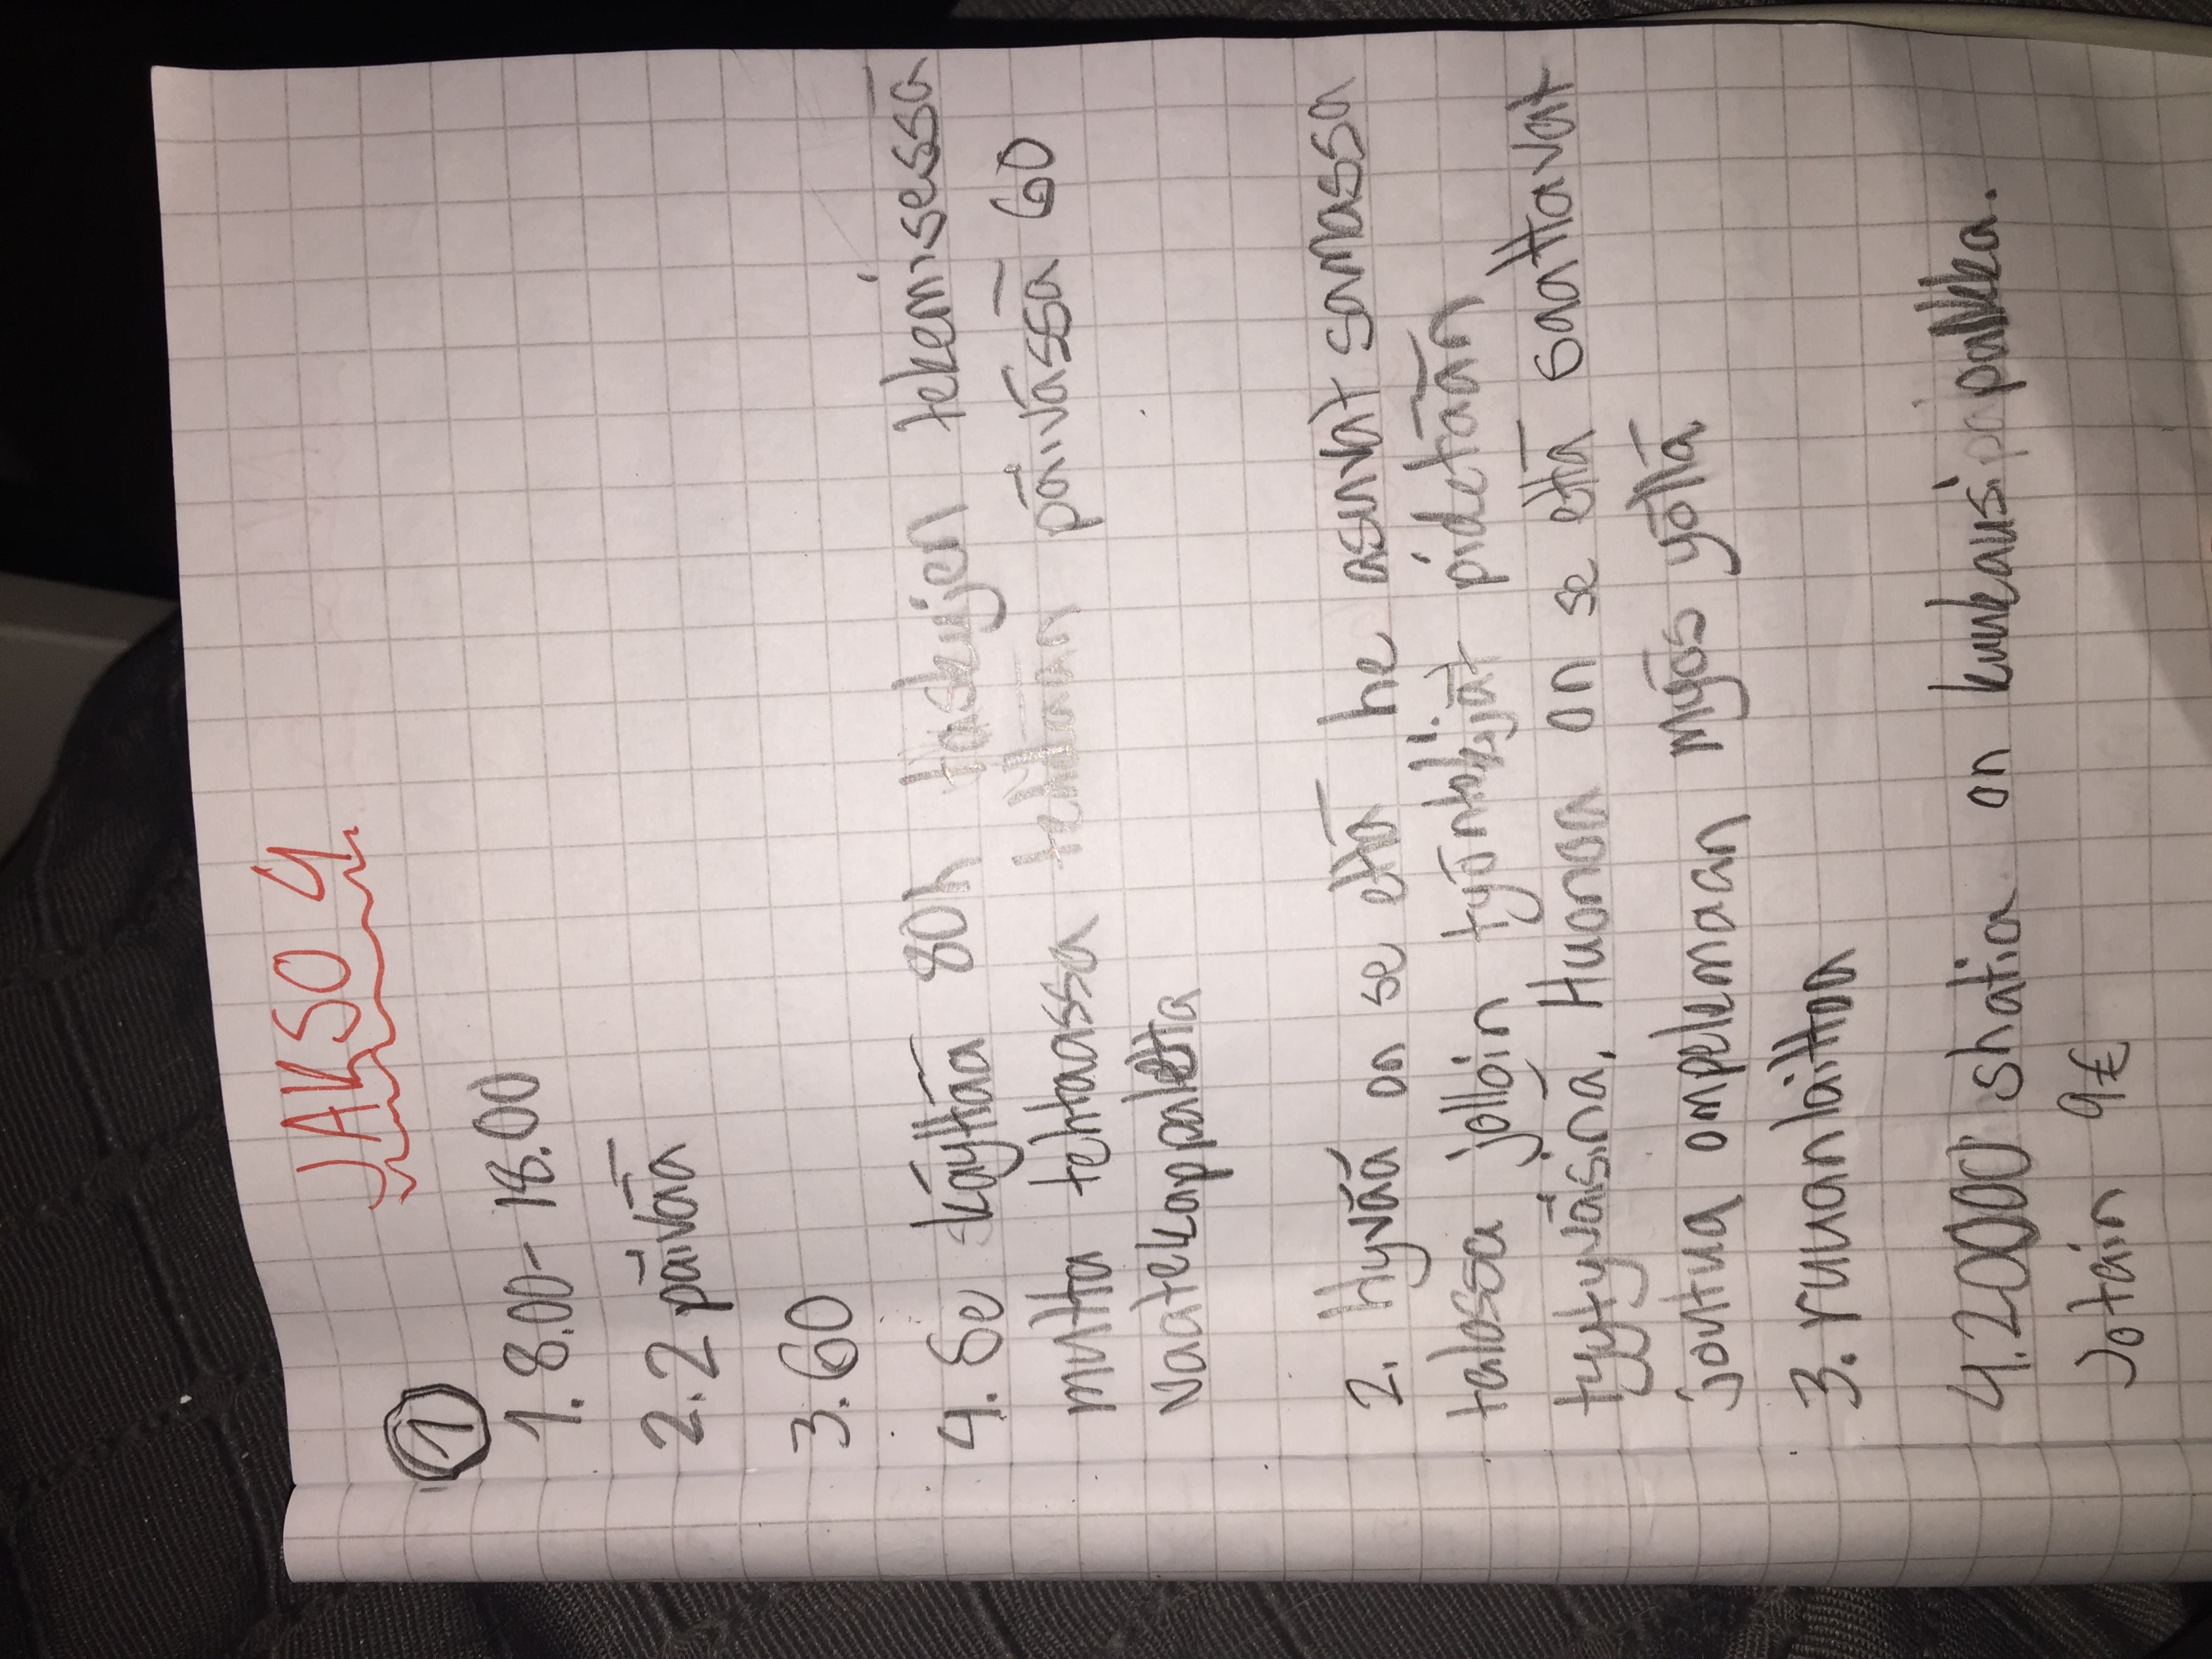 JAKSO 4
1
1. 8.00 - 18.00
2. 2 päivää
3. 60
4. Se käyttää 80h taskujen tekemisessä
mutta tehtaassa tehdään päivässä 60
vaatekappaletta
2. Hyvää on se että he asuvat samassa
talossa jolloin työntekijät pidetään
tyytyväsinä. Huonoa on se että saattavat
joutua ompelemaan myös yöllä.
3. ruuanlaitton
4. 20000 shatia on kuukausipalkka.
Jotain 9€